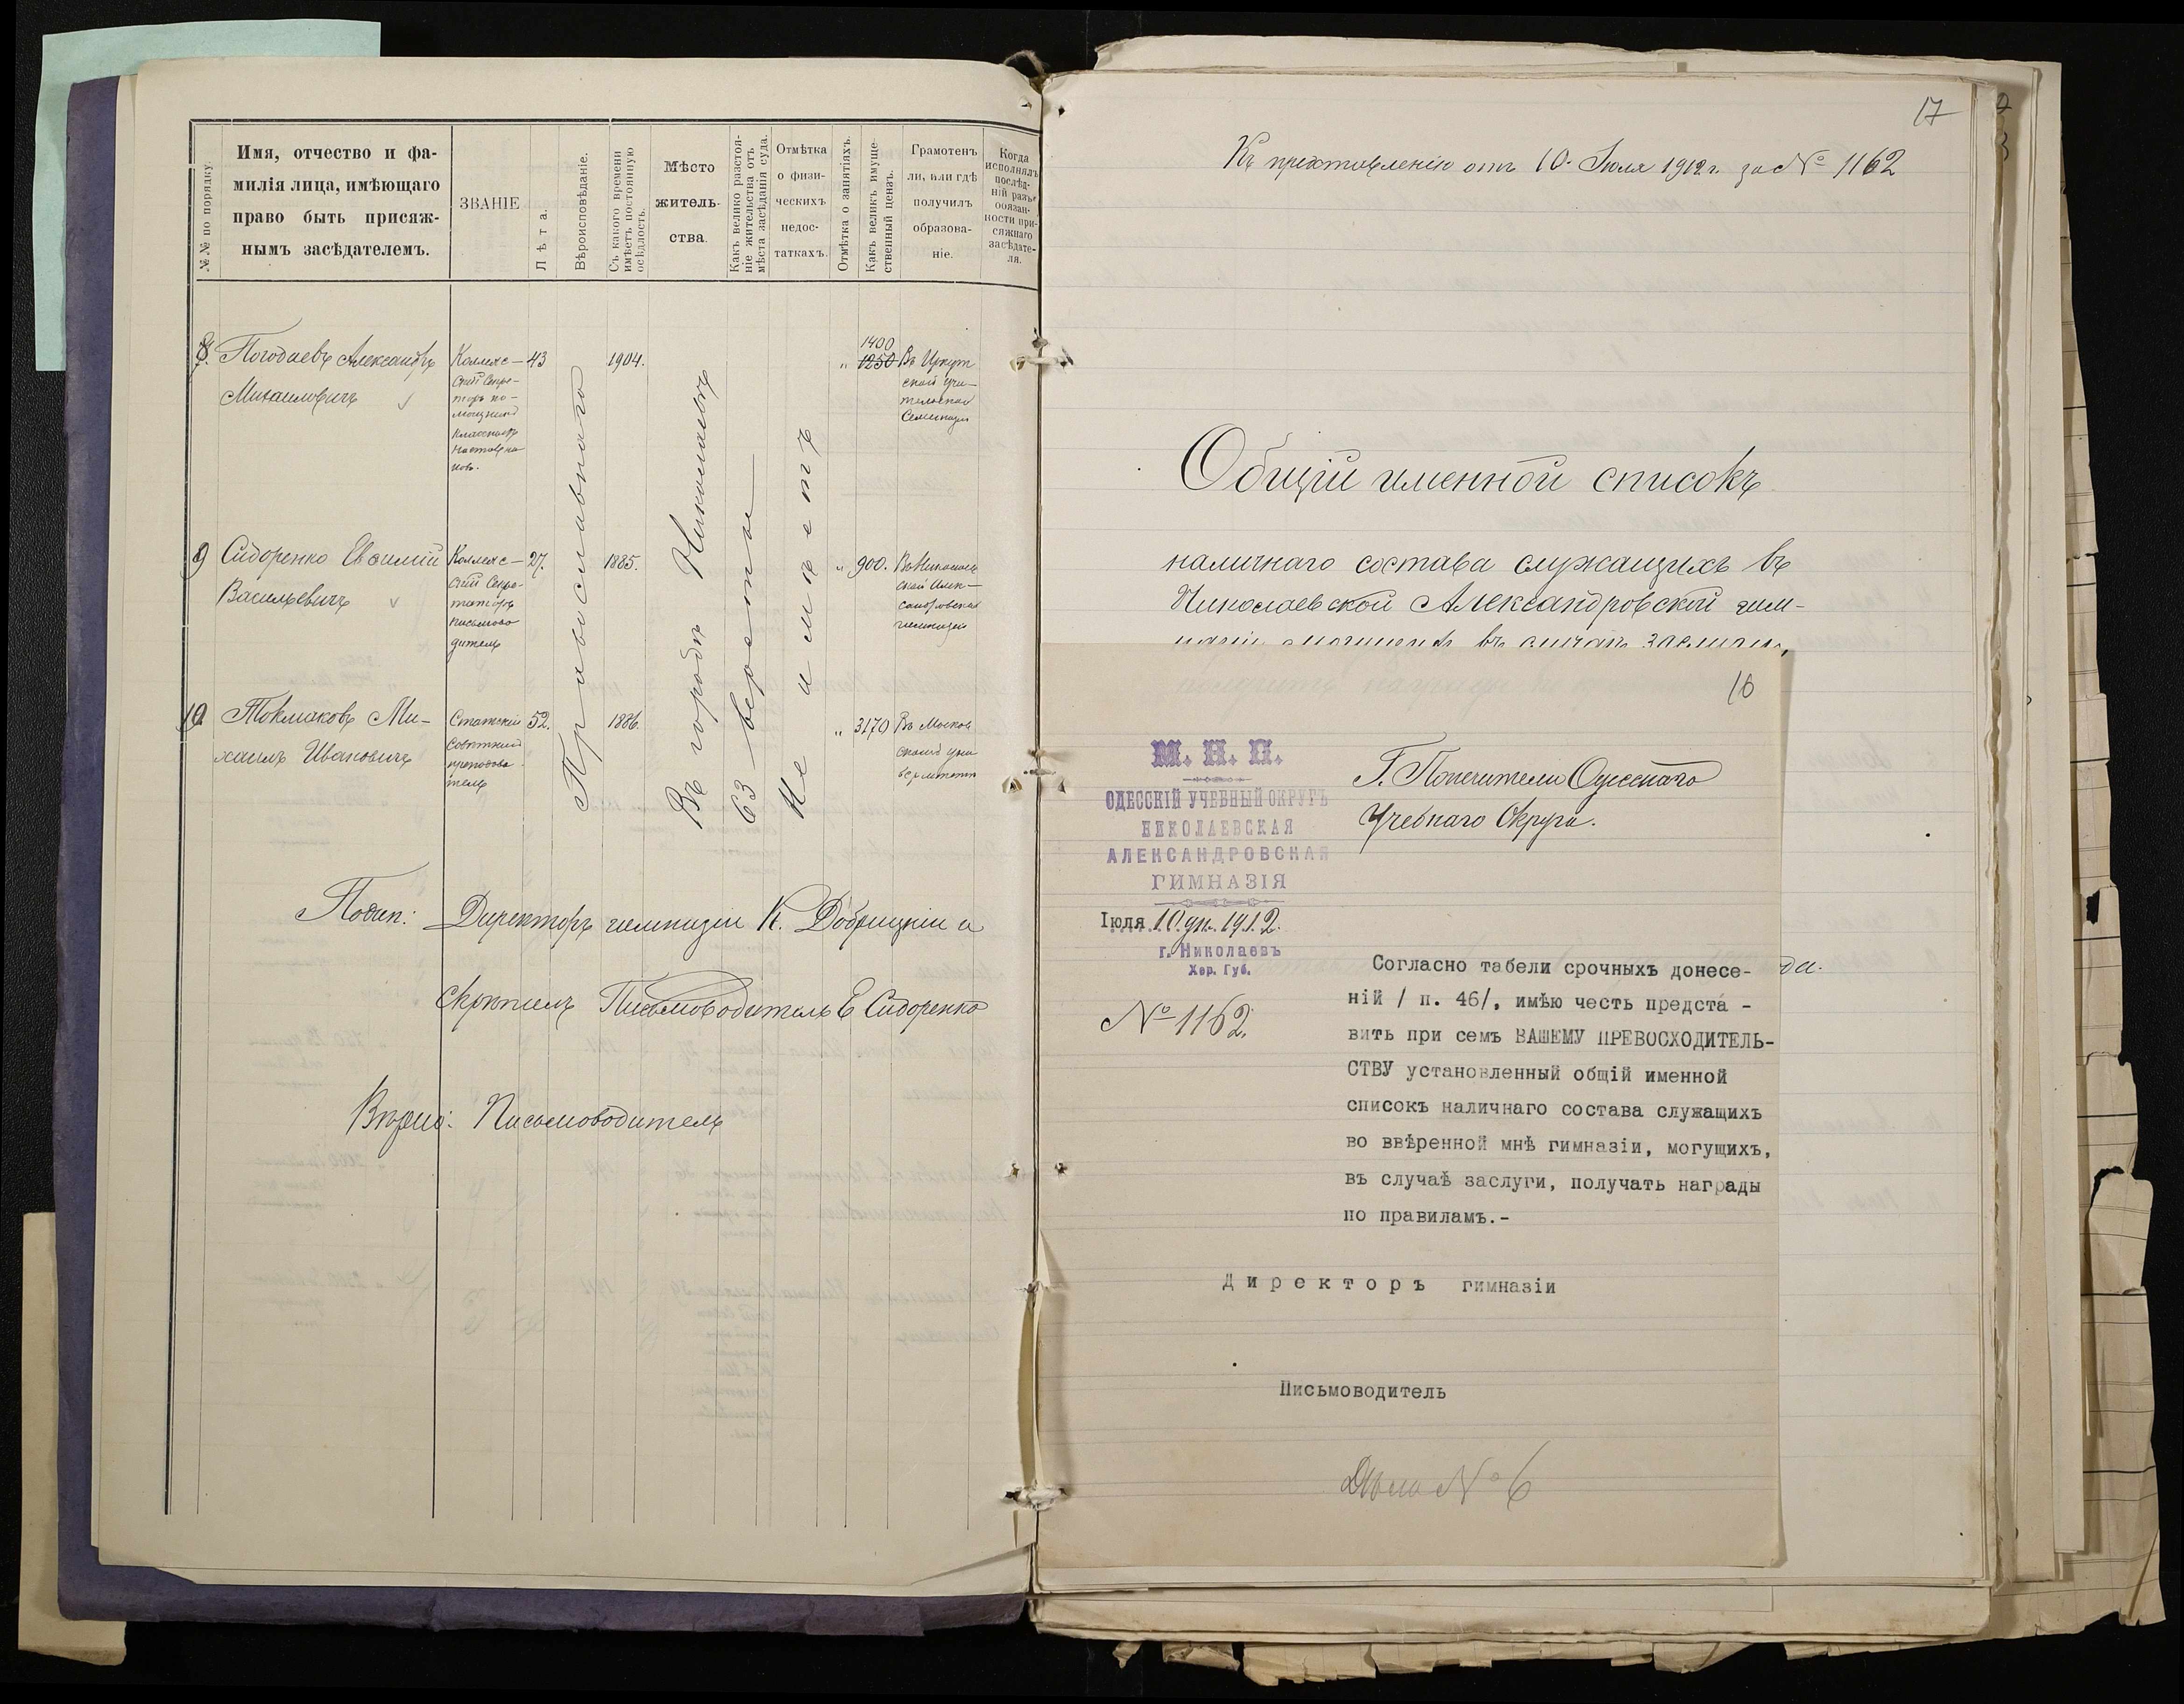 №№ по порядку.
Имя, отчество и фа-
милія лица, имѣющаго
право быть присяж-
нымъ засѣдателемъ.
ЗВАНІЕ
Лѣта.
Вѣроисповѣданіе.
Съ какого времени
имѣетъ постоянную
осѣдлость.
Мѣсто
житель-
ства.
Какъ велико разстоя-
ніе жительства отъ
мѣста засѣданія суда.
Отмѣтка
о физи-
ческихъ
недос-
таткахъ.
Отмѣтка о занятіяхъ.
Какъ великъ имуще-
ственный цензъ.
Грамотенъ
ли, или гдѣ
получилъ
образова-
ніе.
Когда
исполнялъ
послѣд-
ній разъ
обязан-
ности при-
сяжнаго
засѣдате-
ля.
8. Погодаевъ Александръ
Михаиловичъ
Коллеж-
скій Секре-
тарь по-
мощникъ
классныхъ
наставни
ковъ.
43
1904.
"
1400
1250
Въ Иркут
ской учи-
тельской
Семинаріи
9 Сидоренко Евѳимій
Васильевичъ
Коллеж-
скій Секре-
тарь
письмово
дитель
27.
1885.
"
900.
Въ Николаев
ской Алек-
сандровской
гимназіи
10 Токмаковъ Ми-
хаилъ Ивановичъ
Статскій
Совѣтникъ
преподава
тель
52.
1886.
"
3170
Въ Москов
скомъ уни
верситетѣ
Православнаго
Въ городѣ Николаевѣ
63 версты
Не имѣетъ
Подп.: Директоръ гимназіи К. Добрицкій и
Скрѣпилъ Письмоводитель Е Сидоренко
Вѣрно: Письмоводитель
17
Къ представленію отъ 10. Іюля 1912 г. за № 1162
Общій именной списокъ
наличнаго состава служащихъ въ
Николаевской Александровской гим-
назіи могущихъ въ случаѣ заслуги,
16
М. Н. П.
ОДЕССКІЙ УЧЕБНЫЙ ОКРУГЪ
НИКОЛАЕВСКАЯ
АЛЕКСАНДРОВСКАЯ
ГИМНАЗІЯ
Іюля 10 дн. 1912.
г. Николаевъ
Хер. Губ.
№ 1162.
Г. Попечителю Одесскаго
Учебнаго Округа.
Согласно табели срочныхъ донесе-
ній / п. 46/, имѣю честь предста -
вить при семъ ВАШЕМУ ПРЕВОСХОДИТЕЛЬ-
СТВУ установленный общій именной
списокъ наличнаго состава служащихъ
во ввѣренной мнѣ гимназіи, могущихъ,
въ случаѣ заслуги, получать награды
по правиламъ.-
Директоръ гимназіи
Письмоводитель
Дѣло № 6